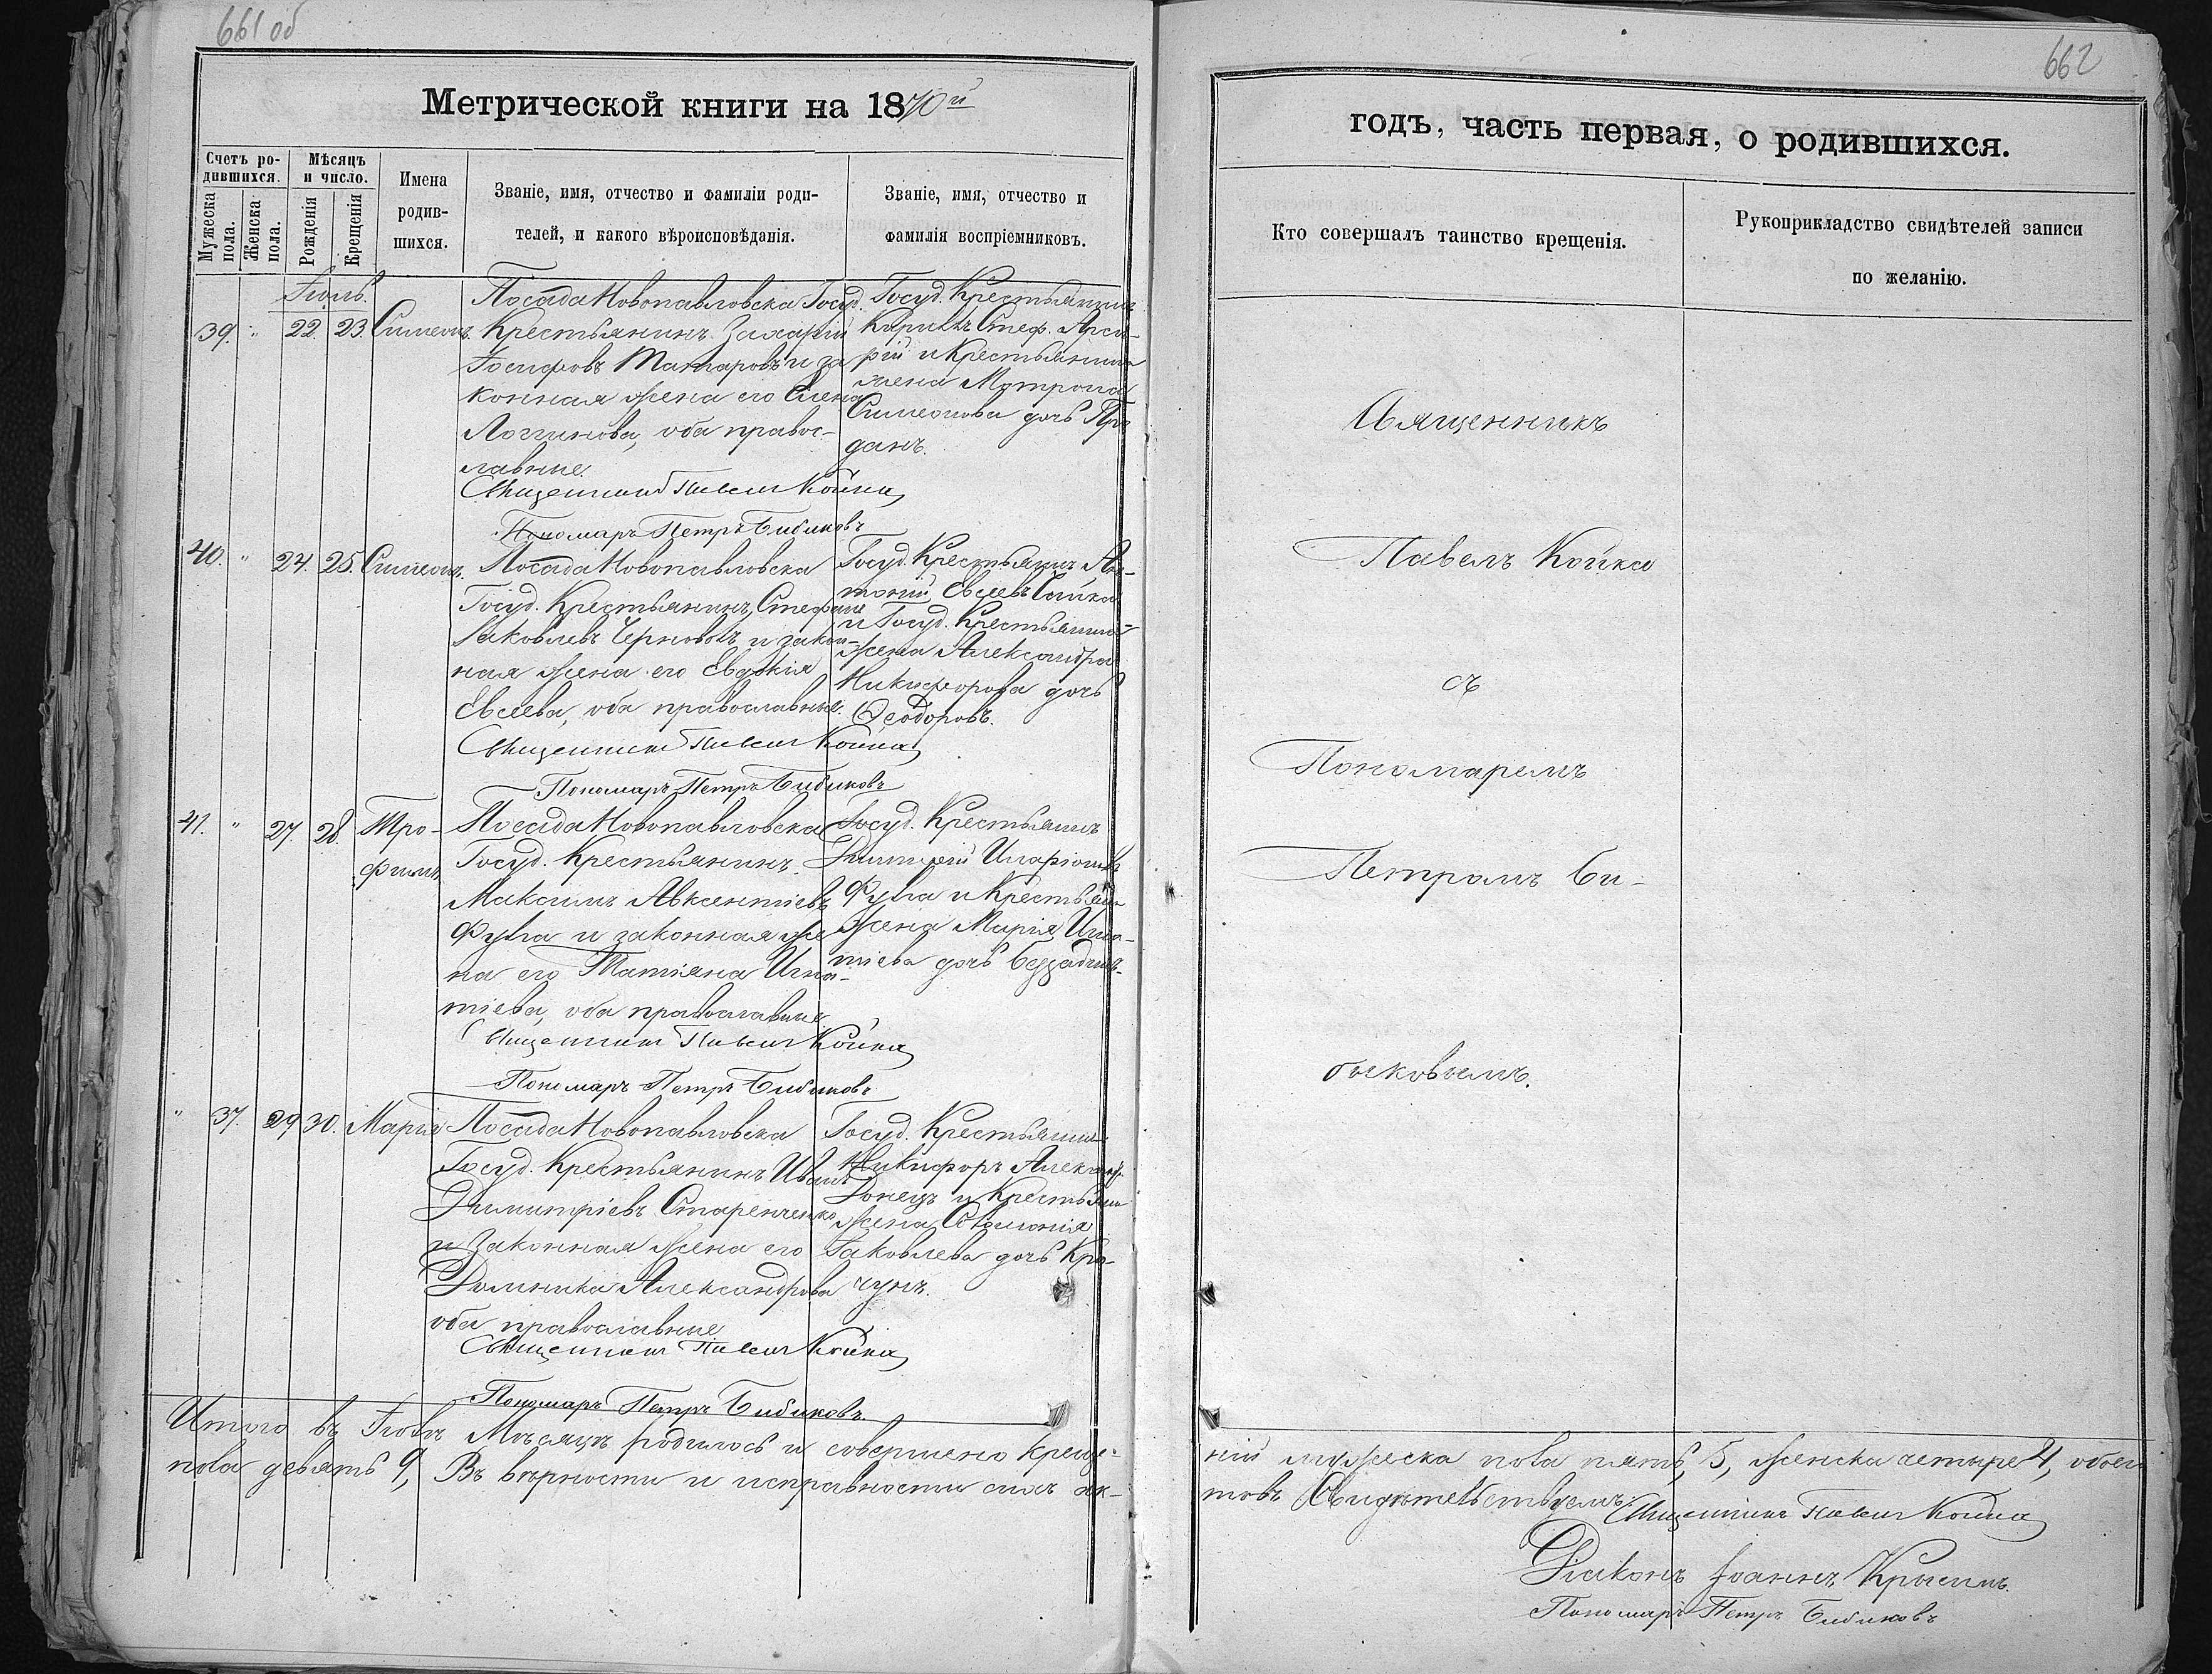 661 об
Метрической книги на 1870й
Счетъ ро-
дившихся.
Мѣсяцъ
и число.
Мужеска
пола.
Женска
пола.
Рожденія
Крещенія
Имена
родив-
шихся.
Званіе, имя, отчество и фамиліи роди-
телей, и какого вѣроисповѣданія.
Званіе, имя, отчество и
фамилія воспріемниковъ.
Іюль.
39. " 22. 23. Симеонъ.
Посада Новопавловска Госуд.
Крестьянинъ Захарій
Іосифовъ Татаровъ и за
конная жена его Елена
Логгинова, оба правос-
лавные.
Священникъ Павелъ Койка
Пономарь Петръ Бибиковъ
Госуд. Крестьянинъ
Кириллъ Стеф.
и Крестьянина
жена Мотрона
Симеонова дочь
данъ.
40. " 24. 25. Симеонъ.
Посада Новопавловска
Госуд. Крестьянинъ Стефанъ
Іаковлевъ Черноволъ и закон-
ная жена его Евдокія
Евсеева, оба православные.
Священникъ Павелъ Койка
Пономарь Петръ Бибиковъ
Госуд. Крестьянинъ Ан-
тоній Евсеевъ
и Госуд. Крестьянина
жена Александра
Никифорова дочь
Ѳеодоровъ.
41. " 27. 28. Тро-
фимъ.
Посада Новопавловска
Госуд. Крестьянинъ
Максимъ Авксентіевъ
Фулга и законная же
на его Татіана Игна-
тіева, оба православные
Священникъ Павелъ Койка
Пономарь Петръ Бибиковъ
Госуд. Крестьянинъ
Димитрій Иларіоновъ
Фулга и Крестьянина
жена Марія Игна-
тіева дочь
" 37. 29 30. Марія
Посада Новопавловска
Госуд. Крестьянинъ Иванъ
Димитріевъ Старенченко
и законная жена его
Домника Александрова
оба православные
Священникъ Павелъ Койка
Пономарь Петръ Бибиковъ
Госуд. Крестьянинъ
Никифоръ Александр.
Донецъ и Крестьянина
жена
Іаковлева дочь Кра-
чунъ.
Итого въ Іюлѣ Мѣсяцѣ родилось и совершено креще-
пола девять 9, Въ вѣрности и исправности сихъ ак-
662
годъ, часть первая, о родившихся.
Кто совершалъ таинство крещенія.
Рукоприкладство свидѣтелей записи
по желанію.
Священникъ
Павелъ Койка
съ
Пономаремъ
Петромъ Би-
биковымъ.
ній мужеска пола пять, 5, женска четыре 4, обоего
товъ Свидѣтельствуемъ: Священникъ Павелъ Койка
Діаконъ Іоаннъ
Пономарь Петръ Бибиковъ